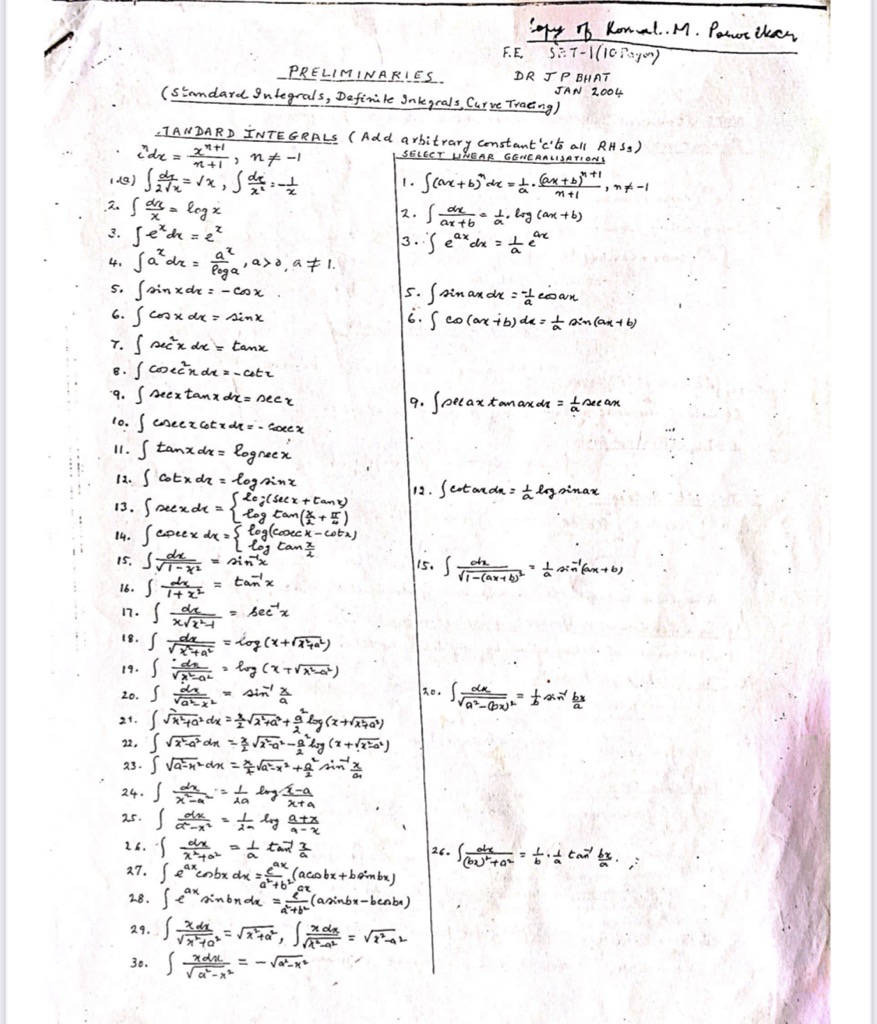 Copy of Komal. M.
F.E. SET-1 (10 Pages)
PRELIMINARIES
DR J P BHAT
JAN 2004
(Standard Integrals, Definite Integrals, Curve Tracing)
TANDARD INTEGRALS (Add arbitrary constant 'c' to all RHSs)
SELECT LINEAR GENERALISATIONS
x^n dx = x^(n+1)/(n+1), n ≠ -1
∫ dx/(2√x) = √x, ∫ dx/x² = -1/x
2. ∫ dx/x = log x
3. ∫ e^x dx = e^x
4. ∫ a^x dx = a^x/log a, a>0, a ≠ 1.
5. ∫ sin x dx = -cos x
6. ∫ cos x dx = sin x
7. ∫ sec²x dx = tan x
8. ∫ cosec²x dx = -cot x
9. ∫ sec x tan x dx = sec x
10. ∫ cosec x cot x dx = -cosec x
11. ∫ tan x dx = log sec x
12. ∫ cot x dx = log sin x
13. ∫ sec x dx = { log (sec x + tan x)
log tan(x/2 + π/4)
14. ∫ cosec x dx = { log(cosec x - cot x)
log tan x/2
15. ∫ dx/√(1-x²) = sin⁻¹x
16. ∫ dx/(1+x²) = tan⁻¹x
17. ∫ dx/(x√(x²-1)) = sec⁻¹x
18. ∫ dx/√(x²+a²) = log (x+√(x²+a²))
19. ∫ dx/√(x²-a²) = log (x+√(x²-a²))
20. ∫ dx/√(a²-x²) = sin⁻¹ x/a
21. ∫ √(x²+a²) dx = x/2 √(x²+a²) + a²/2 log (x+√(x²+a²))
22. ∫ √(x²-a²) dx = x/2 √(x²-a²) - a²/2 log (x+√(x²-a²))
23. ∫ √(a²-x²) dx = x/2 √(a²-x²) + a²/2 sin⁻¹ x/a
24. ∫ dx/(x²-a²) = 1/2a log (x-a)/(x+a)
25. ∫ dx/(a²-x²) = 1/2a log (a+x)/(a-x)
26. ∫ dx/(x²+a²) = 1/a tan⁻¹ x/a
27. ∫ e^ax cos bx dx = e^ax/(a²+b²) (a cos bx + b sin bx)
28. ∫ e^ax sin bx dx = e^ax/(a²+b²) (a sin bx - b cos bx)
29. ∫ x dx/√(x²+a²) = √(x²+a²), ∫ x dx/√(x²-a²) = √(x²-a²)
30. ∫ x dx/√(a²-x²) = -√(a²-x²)
1. ∫(ax+b)^n dx = 1/a . (ax+b)^(n+1)/(n+1), n ≠ -1
2. ∫ dx/(ax+b) = 1/a . log (ax+b)
3. ∫ e^ax dx = 1/a e^ax
5. ∫ sin ax dx = -1/a cos ax
6. ∫ cos (ax+b) dx = 1/a sin (ax+b)
9. ∫ sec ax tan ax dx = 1/a sec ax
12. ∫ cot ax dx = 1/a log sin ax
15. ∫ dx/√(1-(ax+b)²) = 1/a sin⁻¹(ax+b)
20. ∫ dx/√(a²-(bx)²) = 1/b sin⁻¹ bx/a
26. ∫ dx/((bx)²+a²) = 1/b . 1/a tan⁻¹ bx/a